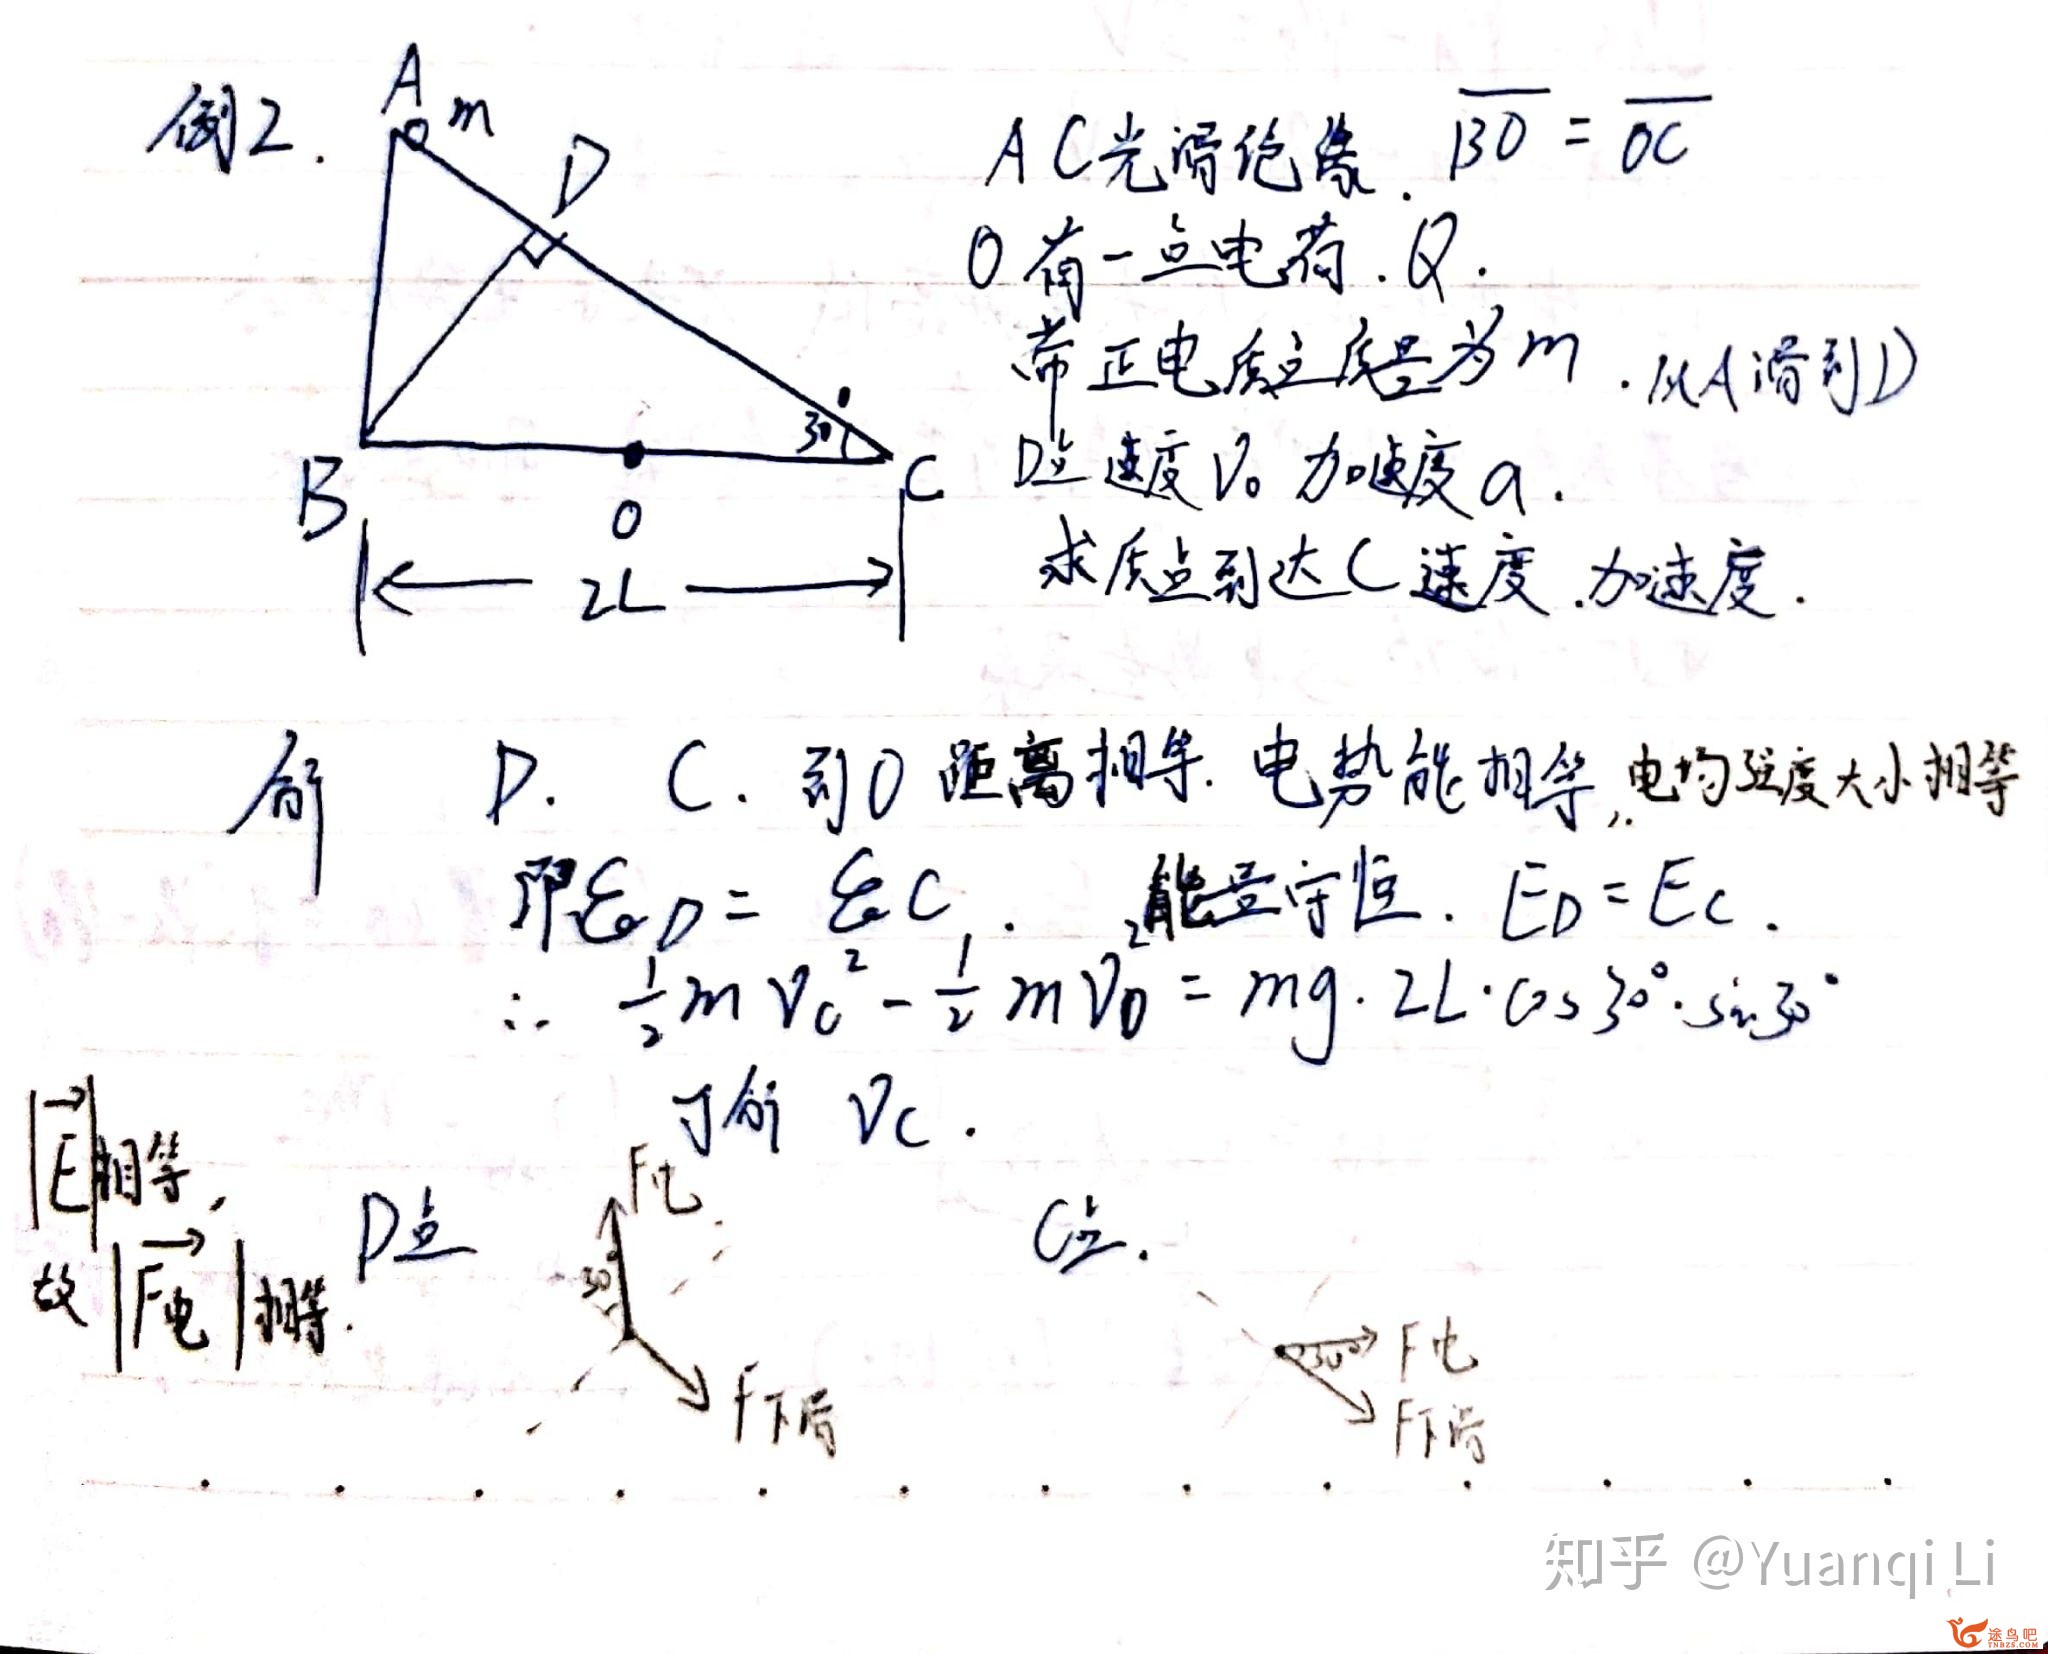 例2.
A m
D
30°
B O C
2L
AC光滑绝缘. BO = OC
O有一点电荷.Q.
带正电质点质量为m.从A滑到D
D点速度V₀ 加速度a.
求质点到达C速度.加速度.
解 D. C. 到O距离相等.电势能相等,电场强度大小相等
即ε_D = ε_C. 能量守恒. E_D = E_C.
∴ ½mV_C² - ½mV_D² = mg·2L·cos30°·sin30°
可解 V_C.
|E|相等,
故|F电|相等.
D点 F电 30° F下滑
C点. F电 30° F下滑
知乎 @Yuanqi Li
途鸟吧
TNBZS.COM